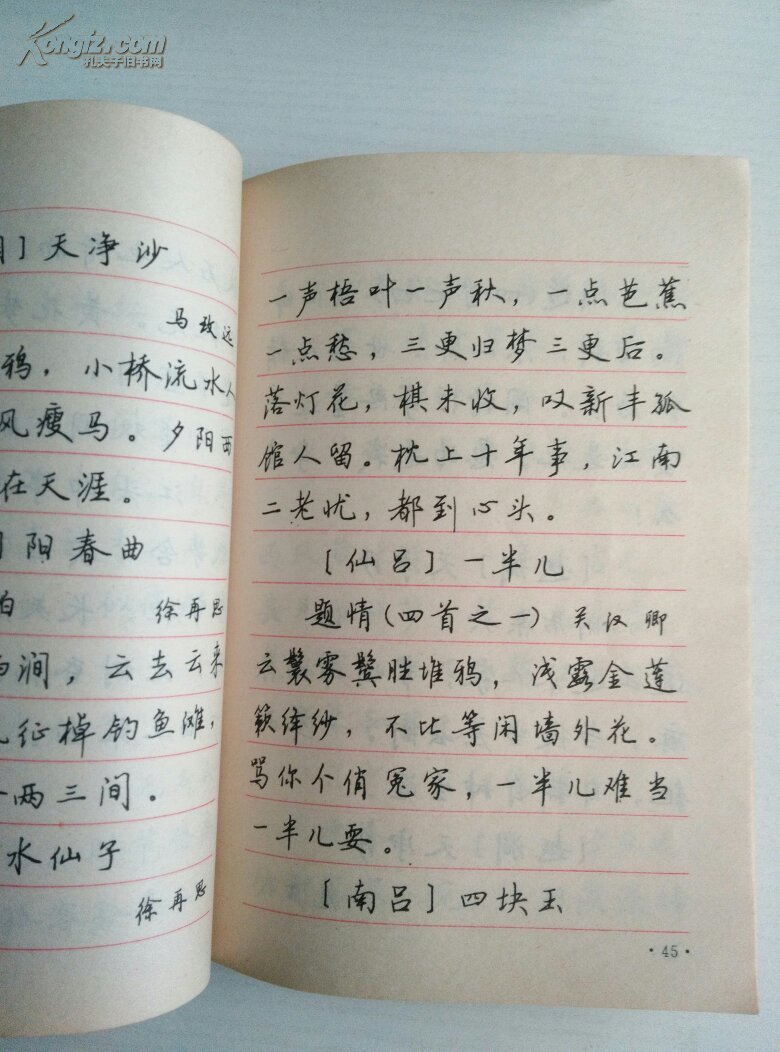 Kongfz.com
孔夫子旧书网
］天净沙
马致远
鸦，小桥流水人
风瘦马。夕阳西
在天涯。
］阳春曲
徐再思
雨涧，云去云来
征棹钓鱼滩，
两三间．
水仙子
徐再思
一声梧叶一声秋，一点芭蕉
一点愁，三更归梦三更后。
落灯花，棋未收，叹新丰孤
馆人留。枕上十年事，江南
二老忧，都到心头。
［仙吕］一半儿
题情(四首之一) 关汉卿
云鬟雾鬓胜堆鸦，浅露金莲
簌绛纱，不比等闲墙外花。
骂你个俏冤家，一半儿难当
一半儿耍。
［南吕］四块玉
·45·